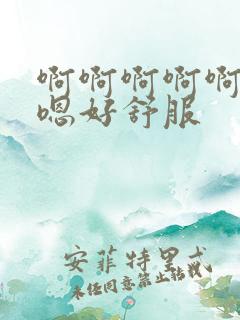 啊啊啊啊啊
嗯好舒服
安菲特里忒
未经同意禁止转载